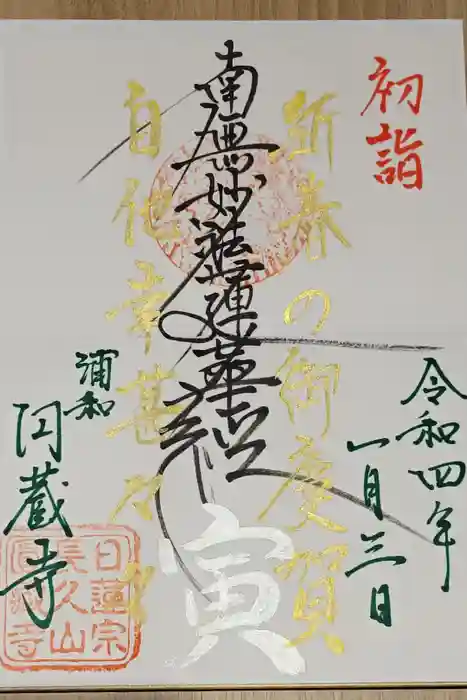 初詣
令和四年
一月三日
新春の御慶賀
南無妙法蓮華経
自他幸甚々々
寅
浦和
円蔵寺
日蓮宗
長久山
圓蔵寺